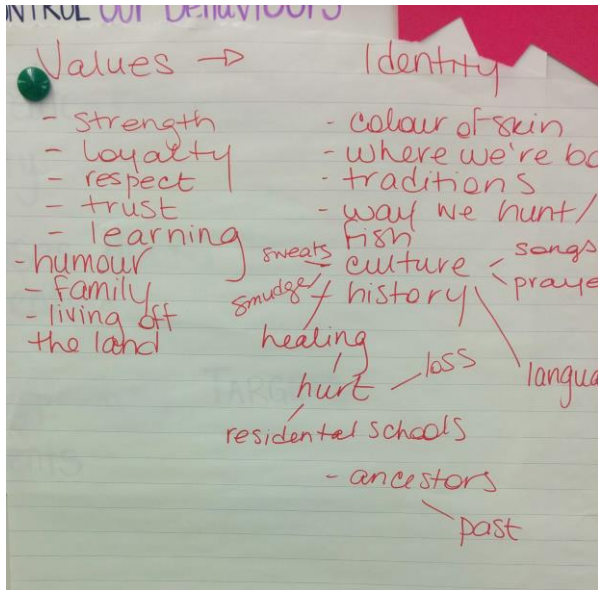 CONTROL OUR BEHAVIOURS
Values → Identity
- Strength
- Loyalty
- respect
- trust
- learning
- humour
- family
- living off
the land
- colour of skin
- where we're bo
- traditions
- way we hunt/
fish
- culture
sweats
smudge
songs
praye
- history
langua
healing
hurt
loss
residental schools
- ancestors
past